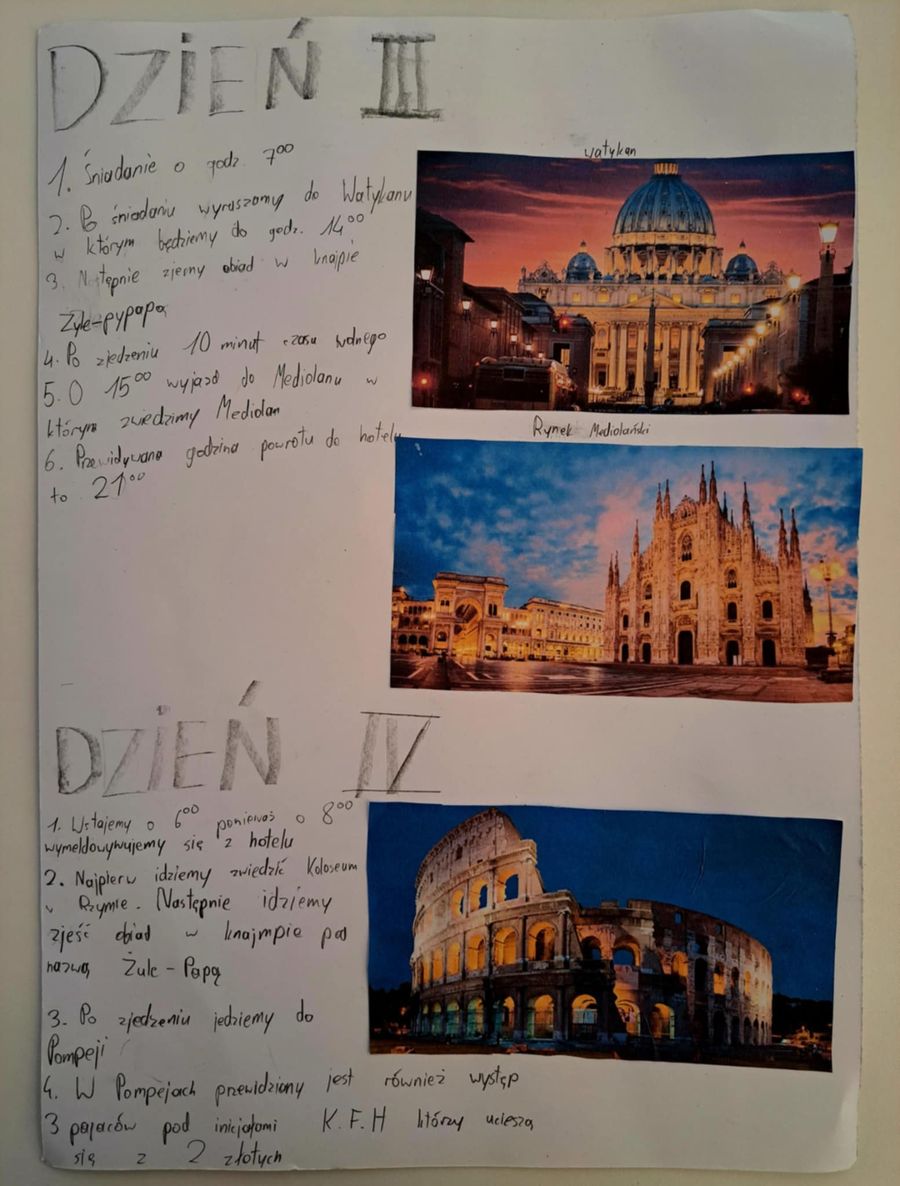 DZIEŃ III
1. Śniadanie o godz. 7⁰⁰
2. Po śniadaniu wyruszamy do Watykanu
w którym będziemy do godz. 14⁰⁰
3. Następnie zjemy obiad w knajpie
Żyle-pypapą
4. Po zjedzeniu 10 minut czasu wolnego
5. O 15⁰⁰ wyjazd do Mediolanu w
którym zwiedzimy Mediolan
6. Przewidywana godzina powrotu do hotelu
to 21⁰⁰
watykan
Rynek Mediolański
DZIEŃ IV
1. Wstajemy o 6⁰⁰ ponieważ o 8⁰⁰
wymeldowywujemy się z hotelu
2. Najpierw idziemy zwiedzić Koloseum
w Rzymie. Następnie idziemy
zjeść obiad w knajmpie pod
nazwą Żule-Papą
3. Po zjedzeniu jedziemy do
Pompeji
4. W Pompejach przewidziany jest również występ
3 pajaców pod inicjałami K.F.H którzy ucieszą
się z 2 złotych